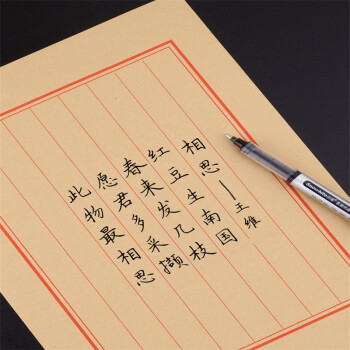 相思—王维
红豆生南国
春来发几枝
愿君多采撷
此物最相思